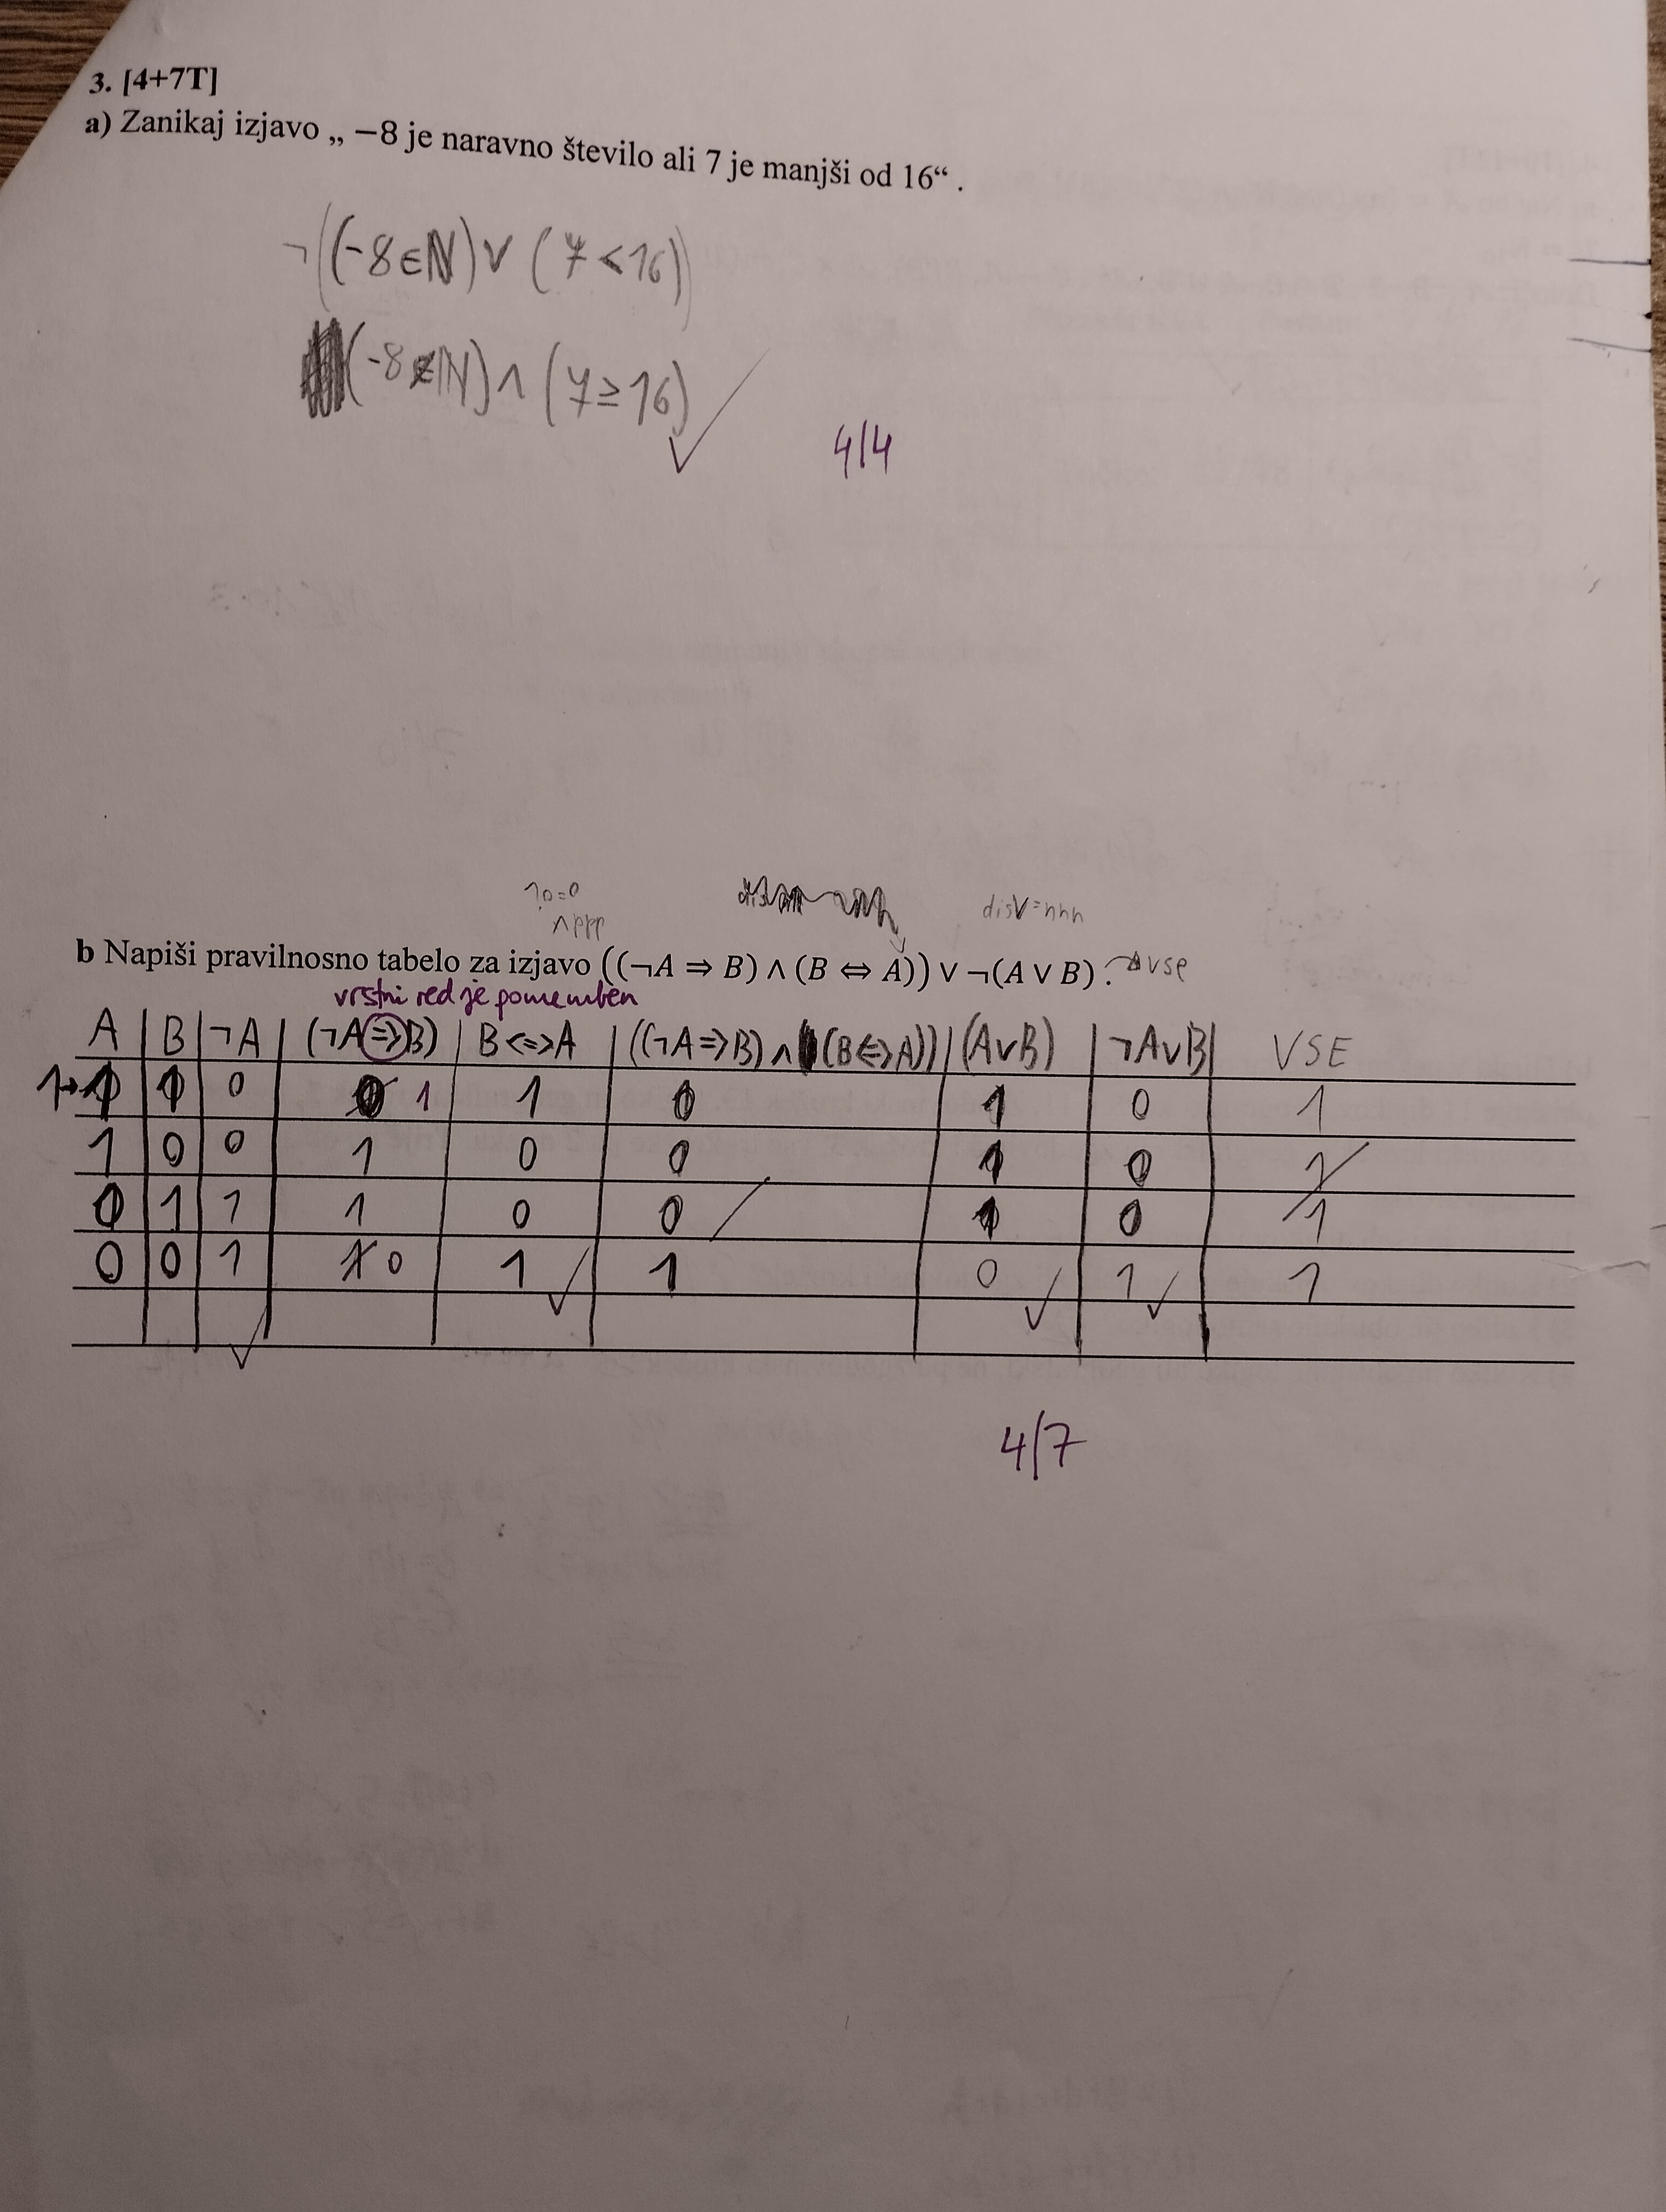 3. [4+7T]
a) Zanikaj izjavo „ −8 je naravno število ali 7 je manjši od 16“ .
¬((-8∈ℕ)∨(7<16))
(-8∉ℕ)∧(7≥16)
4/4
10=0
∧ppp
dis∨=nnn
b Napiši pravilnosno tabelo za izjavo ((¬A ⇒ B) ∧ (B ⇔ A)) ∨ ¬(A ∨ B) . vse
vrstni red je pomemben
A | B | ¬A | (¬A⇒B) | B⇔A | ((¬A⇒B)∧(B⇔A)) | (A∨B) | ¬A∨B | VSE
1→ 1 1 0 0 1 1 0 1 0 1
1 0 0 1 0 0 1 0 1
0 1 1 1 0 0 1 0 1
0 0 1 1 0 1 1 0 1 1
4/7